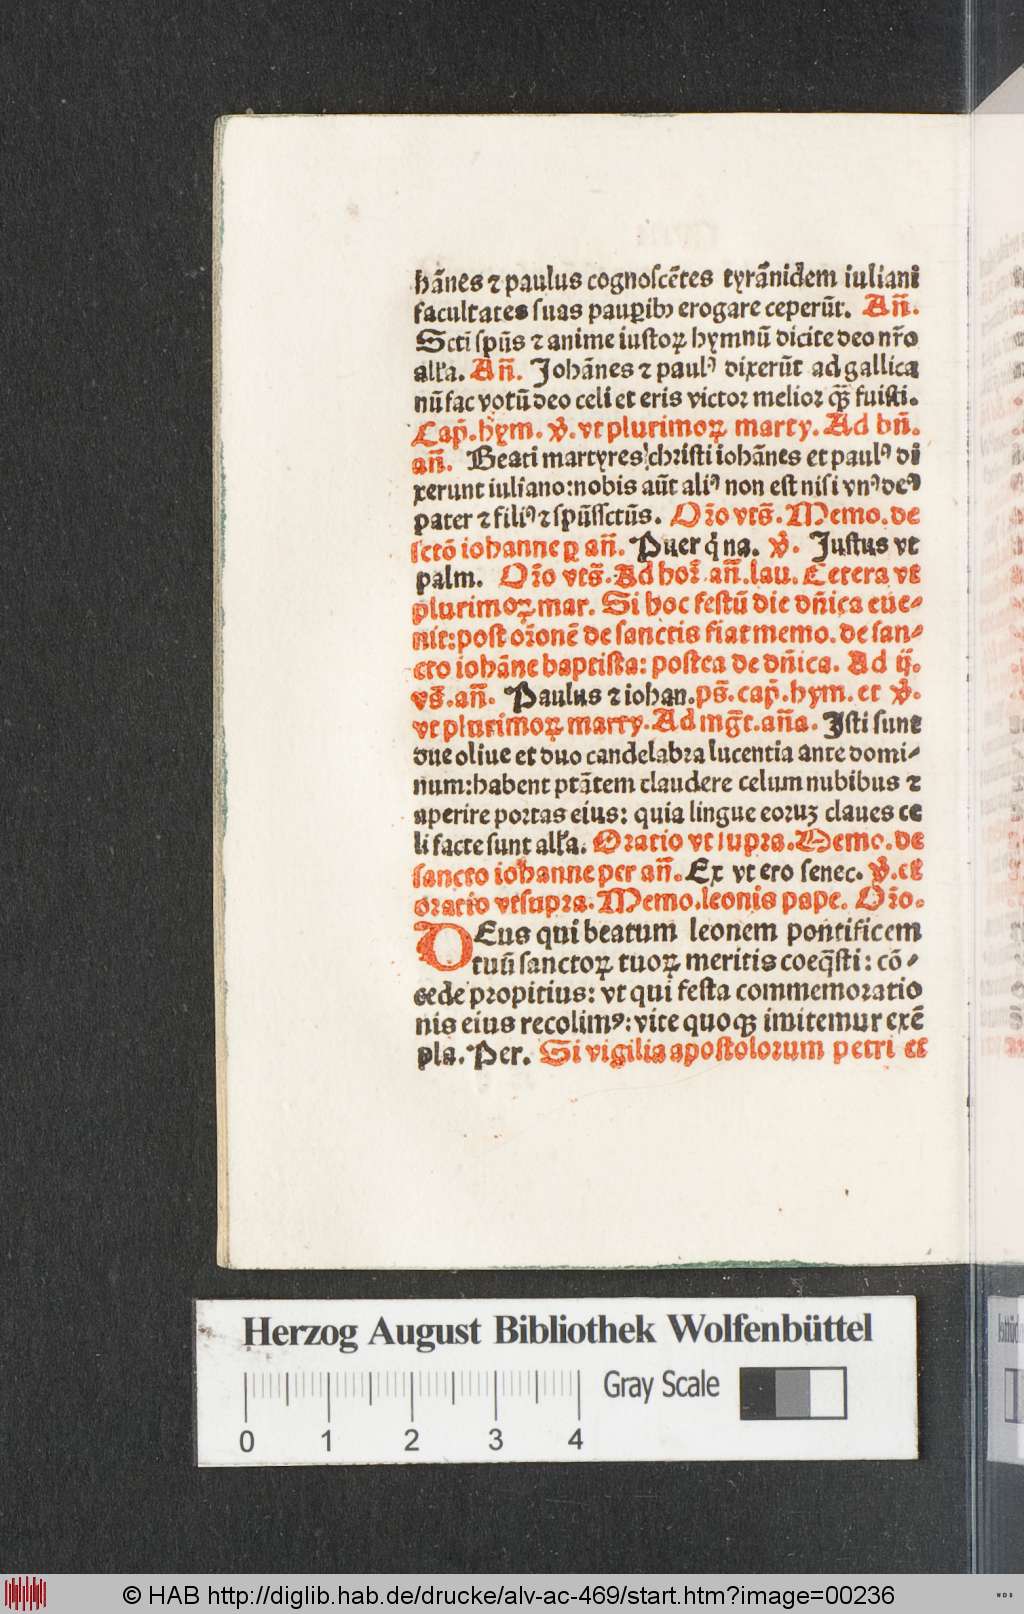 hānes ⁊ paulus cognoscētes tyrānidem iuliani
facultates suas pauꝑibꝫ erogare ceperūt. Añ.
Scti spūs ⁊ anime iustoꝝ hymnū dicite deo nr̄o
alľa. Añ. Johānes ⁊ paulꝰ dixerūt ad gallica
nū fac votū deo celi et eris victor melior qꝫ̄ fuisti.
Cap̄. hym. ꝟ. vt plurimoꝝ marty. Ad bñ.
añ. Beati martyres christi iohānes et paulꝰ di
xerunt iuliano: nobis aūt aliꝰ non est nisi vnꝰ deꝰ
pater ⁊ filiꝰ ⁊ spūssctūs. Oŕo vts̄. Memo. de
sctō iohanne ꝑ añ. Puer q̇ na. ꝟ. Justus vt
palm. Oŕo vts̄. Ad hoŕ. añ. lau. Cetera vt
plurimoꝝ mar. Si hoc festū die dñica eue-
nit: post oŕonē de sanctis fiat memo. de san-
cto iohāne baptista: postea de dñica. Ad ij.
vs̄. añ. Paulus ⁊ iohan. ps̄. cap̄. hym. et ꝟ.
vt plurimoꝝ marty. Ad mgt̄. aña. Isti sunt
due oliue et duo candelabra lucentia ante domi-
num: habent ptātem claudere celum nubibus ⁊
aperire portas eius: quia lingue eoruꝫ claues ce
li facte sunt alľa. Oratio vt supra. Memo. de
sancto iohanne per añ. Ex vtero senec. ꝟ. et
oratio vtsupra. Memo. leonis pape. Oŕo.
DEus qui beatum leonem pontificem
tuū sanctoꝝ tuoꝝ meritis coeq̄sti: cō-
cede propitius: vt qui festa commemoratio
nis eius recolimꝰ: vite quoqꝫ imitemur exē
pla. Per. Si vigilia apostolorum petri et
Herzog August Bibliothek Wolfenbüttel
Gray Scale
0 1 2 3 4
© HAB http://diglib.hab.de/drucke/alv-ac-469/start.htm?image=00236